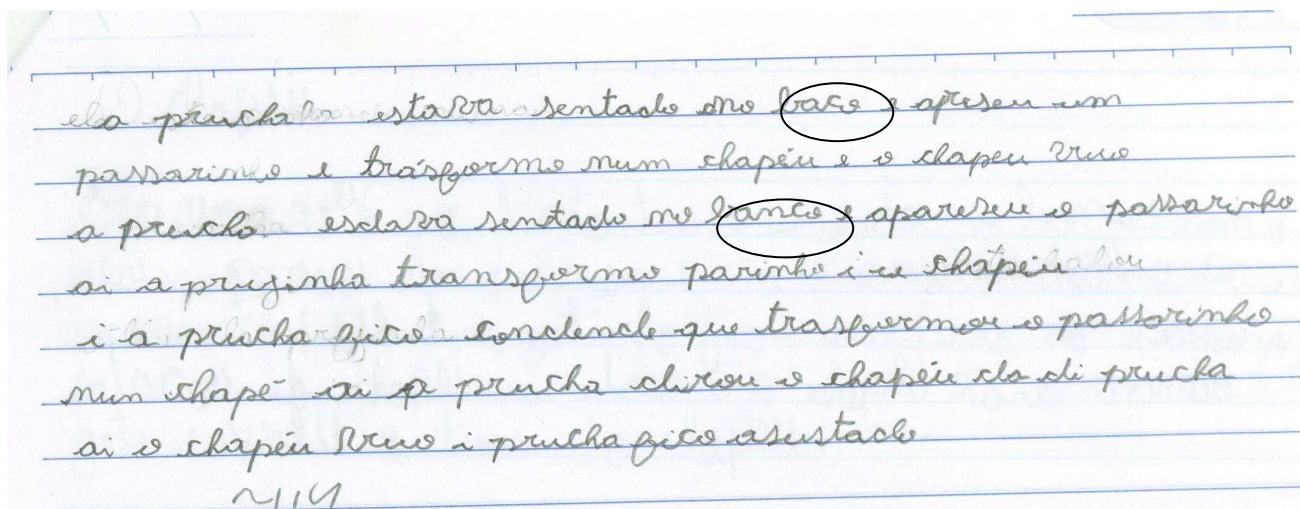 a prucha estava sentado no baco e apreseu um
passarinho e trásformo num chapéu e o chapeu vruo
a prucha esdava sentado no banco e apareseu o passarinho
ai a pruzinha transformo parinho i u chapéu
i a prucha fico condende que trasformou o passarinho
nun chapé ai a prucha dirou o chapéu da di prucha
ai o chapéu vruo i prucha fico asustado